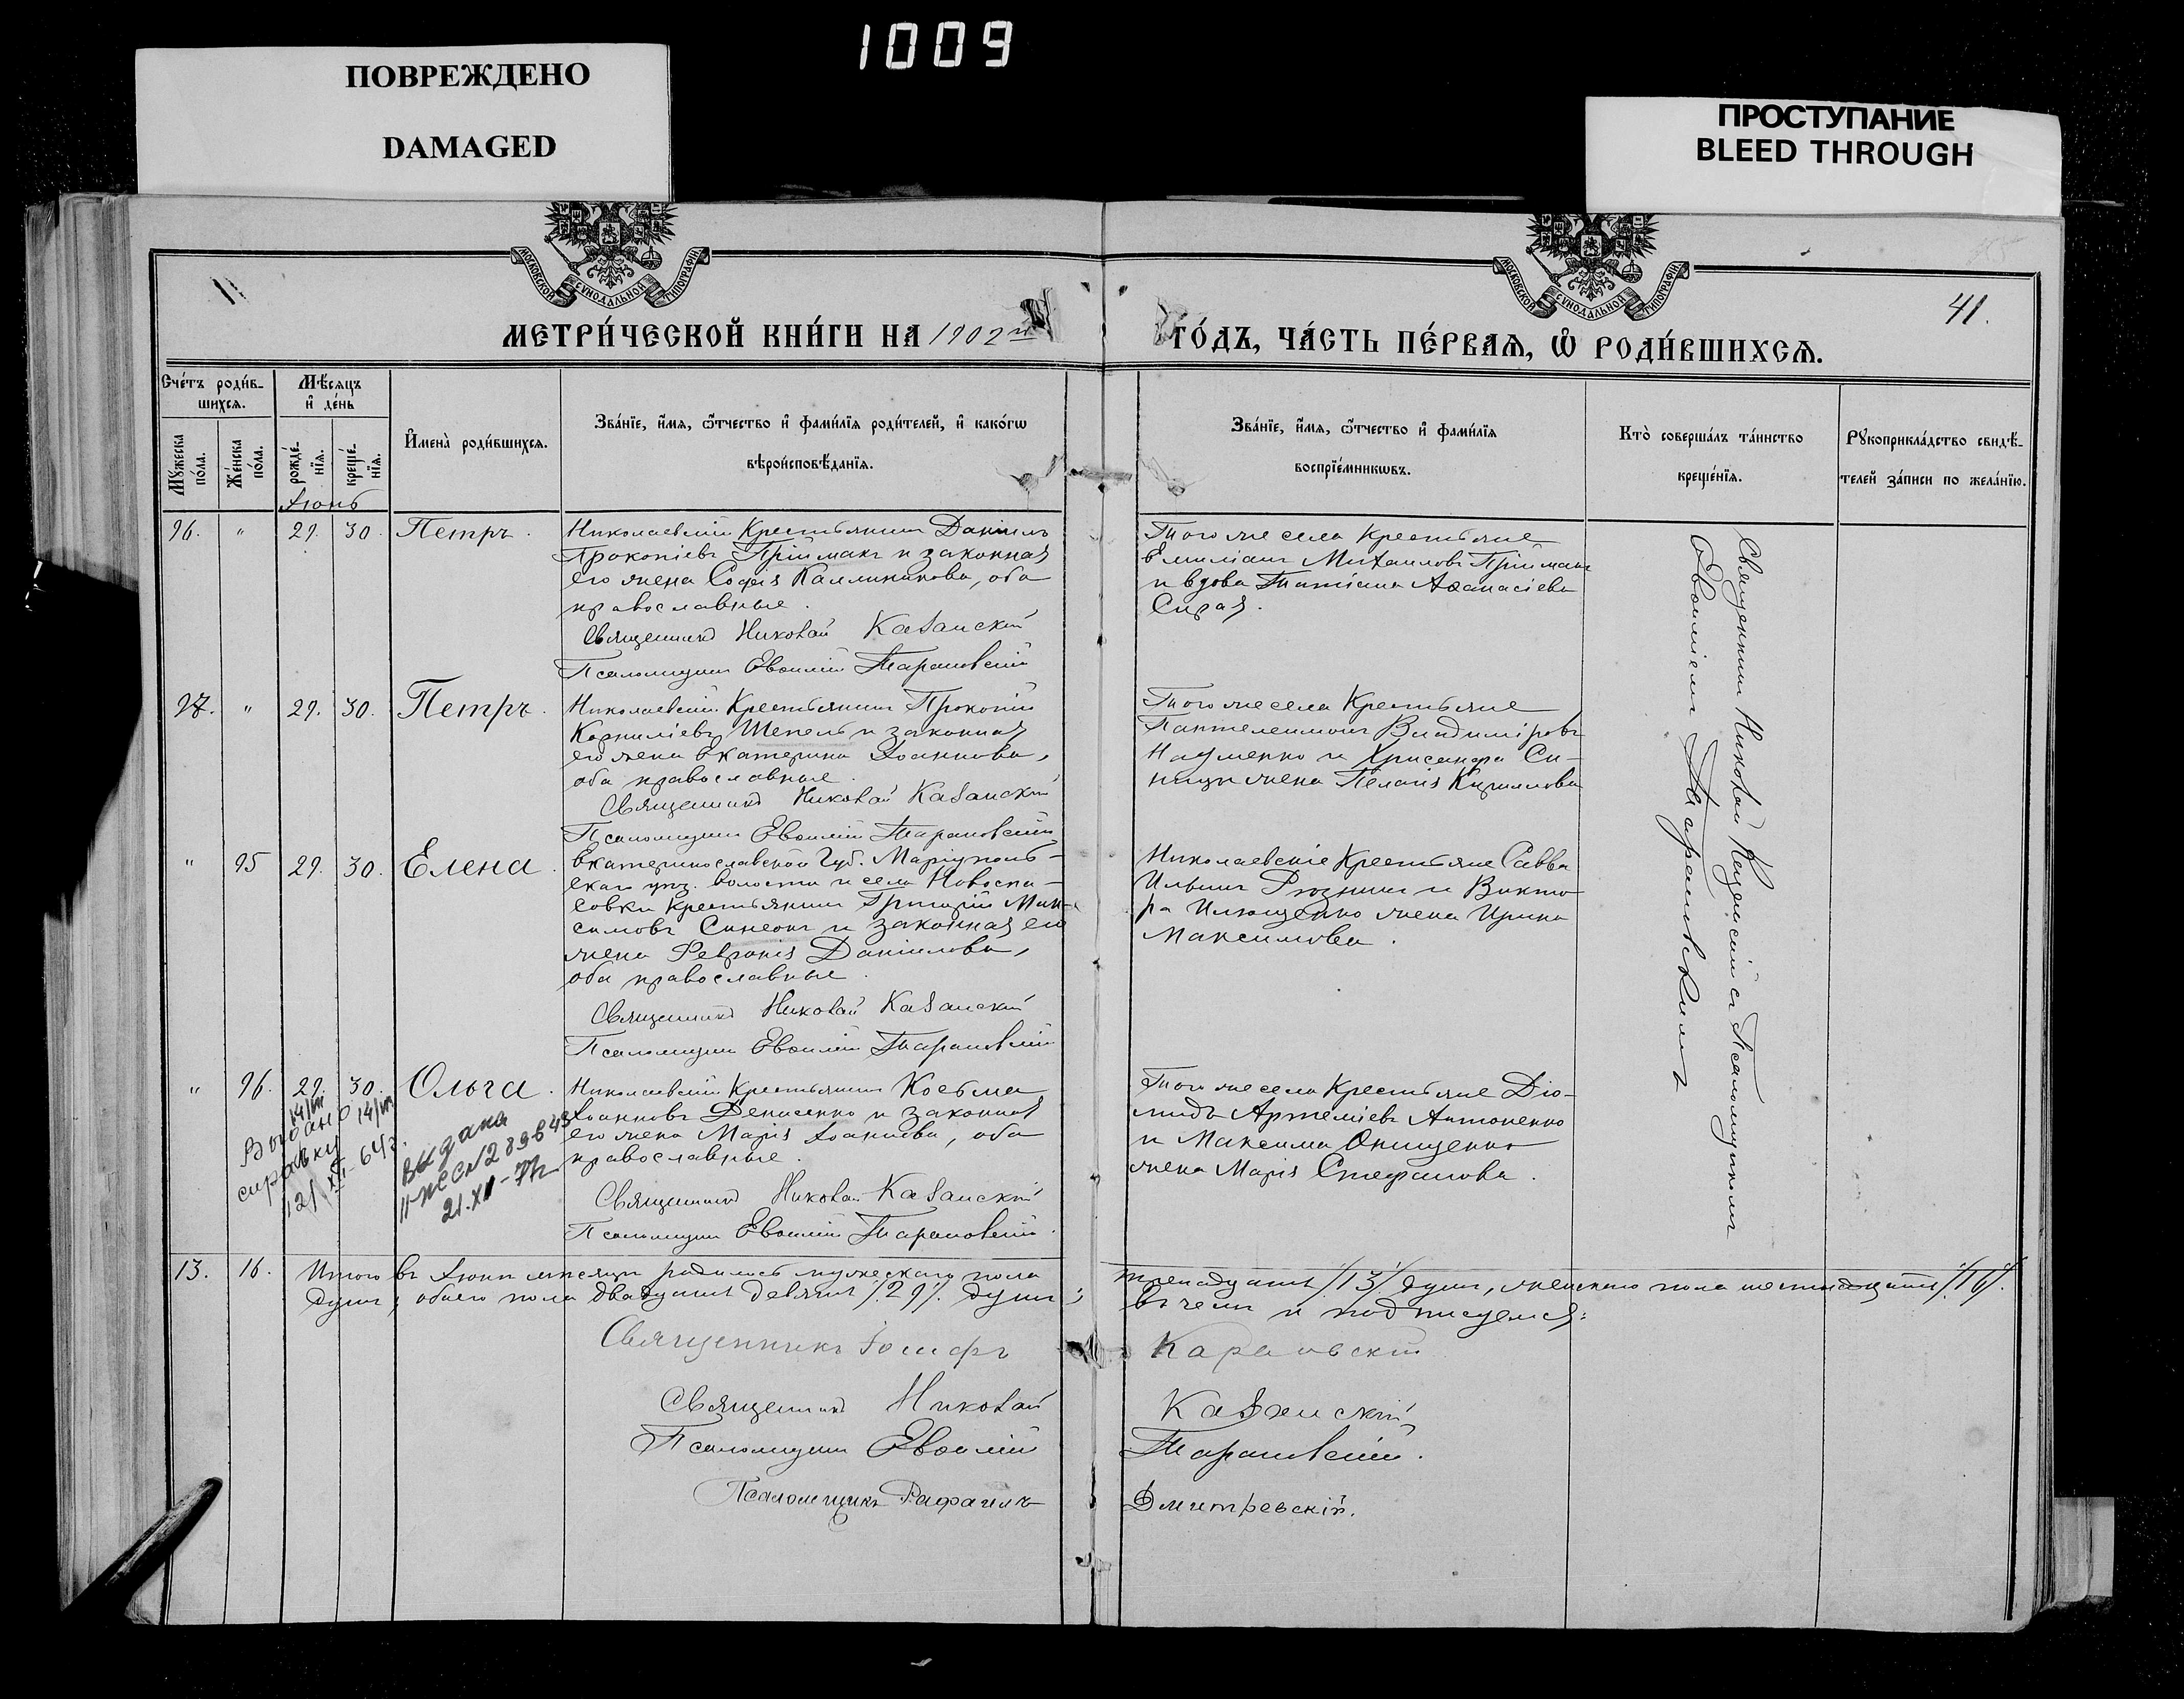 1009
ПОВРЕЖДЕНО
DAMAGED
ПРОСТУПАНИЕ
BLEED THROUGH
МОСКОВСКОЙ СѴНОДАЛЬНОЙ ТИПОГРАФІИ
МОСКОВСКОЙ СѴНОДАЛЬНОЙ ТИПОГРАФІИ
41.
МЕТРИ́ЧЕСКОЙ КНИ́ГИ НА 1902й
ГО́ДЪ, ЧА́СТЬ ПЕ́РВАѦ, Ѡ҆ РОДИ́ВШИХСѦ.
Сче́тъ роди́в-
шихсѧ.
Мꙋ́жеска по́ла.
Же́нска по́ла.
Мѣ́сѧцъ
и҆ де́нь
рожде́-
нїѧ.
креще́-
нїѧ.
И҆мена̀ роди́вшихсѧ.
Зва́нїе, и҆́мѧ, ѻ҆́тчество и҆ фами́лїѧ роди́телей, и҆ како́гѡ
вѣроисповѣ́данїѧ.
Зва́нїе, и҆́мѧ, ѻ҆́тчество и҆ фами́лїѧ
воспрїе́мникѡвъ.
Кто̀ соверша́лъ та́инство
креще́нїѧ.
Рꙋкоприкла́дство свидѣ́-
телей за́писи по жела́нїю.
Іюнь
96. " 29. 30. Петръ.
Николаевскій Крестьянинъ Даніилъ
Прокопіевъ Прійманъ и законная
его жена Софія Каллиникова, оба
православные.
Священникъ Николай Казанскій
Псаломщикъ Евѳимій Тарановскій
Того же села Крестьяне
Емиліанъ Михаиловъ Прійманъ
и вдова Татіана Аѳанасіева
Сирая.
97. " 29. 30. Петръ.
Николаевскій Крестьянинъ Прокопій
Корниліевъ Шепель и законная
его жена Екатерина Іоаннова,
оба православные.
Священникъ Николай Казанскій
Псаломщикъ Евѳимій Тарановскій
Того же села Крестьяне
Пантелеимонъ Владиміровъ
Науменко и Хрисанфа Си-
ницы жена Пелагія Кириллова
" 95 29. 30. Елена.
Екатеринославской Губ. Маріуполь-
скаго уѣз. волости и села Новоспа-
совки Крестьянинъ Григорій Мак-
симовъ Симеонъ и законная его
жена Февронія Даніилова,
оба православные.
Священникъ Николай Казанскій
Псаломщикъ Евѳимій Тарановскій
Николаевскіе Крестьяне Савва
Ильинъ и Викто-
ра Илющенко жена Ирина
Максимова.
" 96. 29. 30. Ольга.
Николаевскій Крестьянинъ Косьма
Іоанновъ Денисенко и законная
его жена Марія Іоаннова, оба
православные.
Священникъ Николай Казанскій
Псаломщикъ Евѳимій Тарановскій.
Того же села Крестьяне Діо-
мидъ Артеміевъ Антоненко
и Максима Онищенко
жена Марія Стефанова.
Выдано
справку
выдана
21.XII-77г
Священникъ Николай Казанскій съ Псаломщикомъ
Евѳиміемъ Тарановскимъ
13. 16. Итого въ Іюнѣ мѣсяцѣ родилось мужескаго пола
тринадцать /13/ душъ, женскаго пола шестнадцать /16/.
душъ; обоего пола двадцать девять /29/. душъ;
въ чемъ и подписуемся:
Священникъ Іосифъ Карановскій
Священникъ Николай Казанскій
Псаломщикъ Евѳимій Тарановскій.
Псаломщикъ Рафаилъ Дмитревскій.